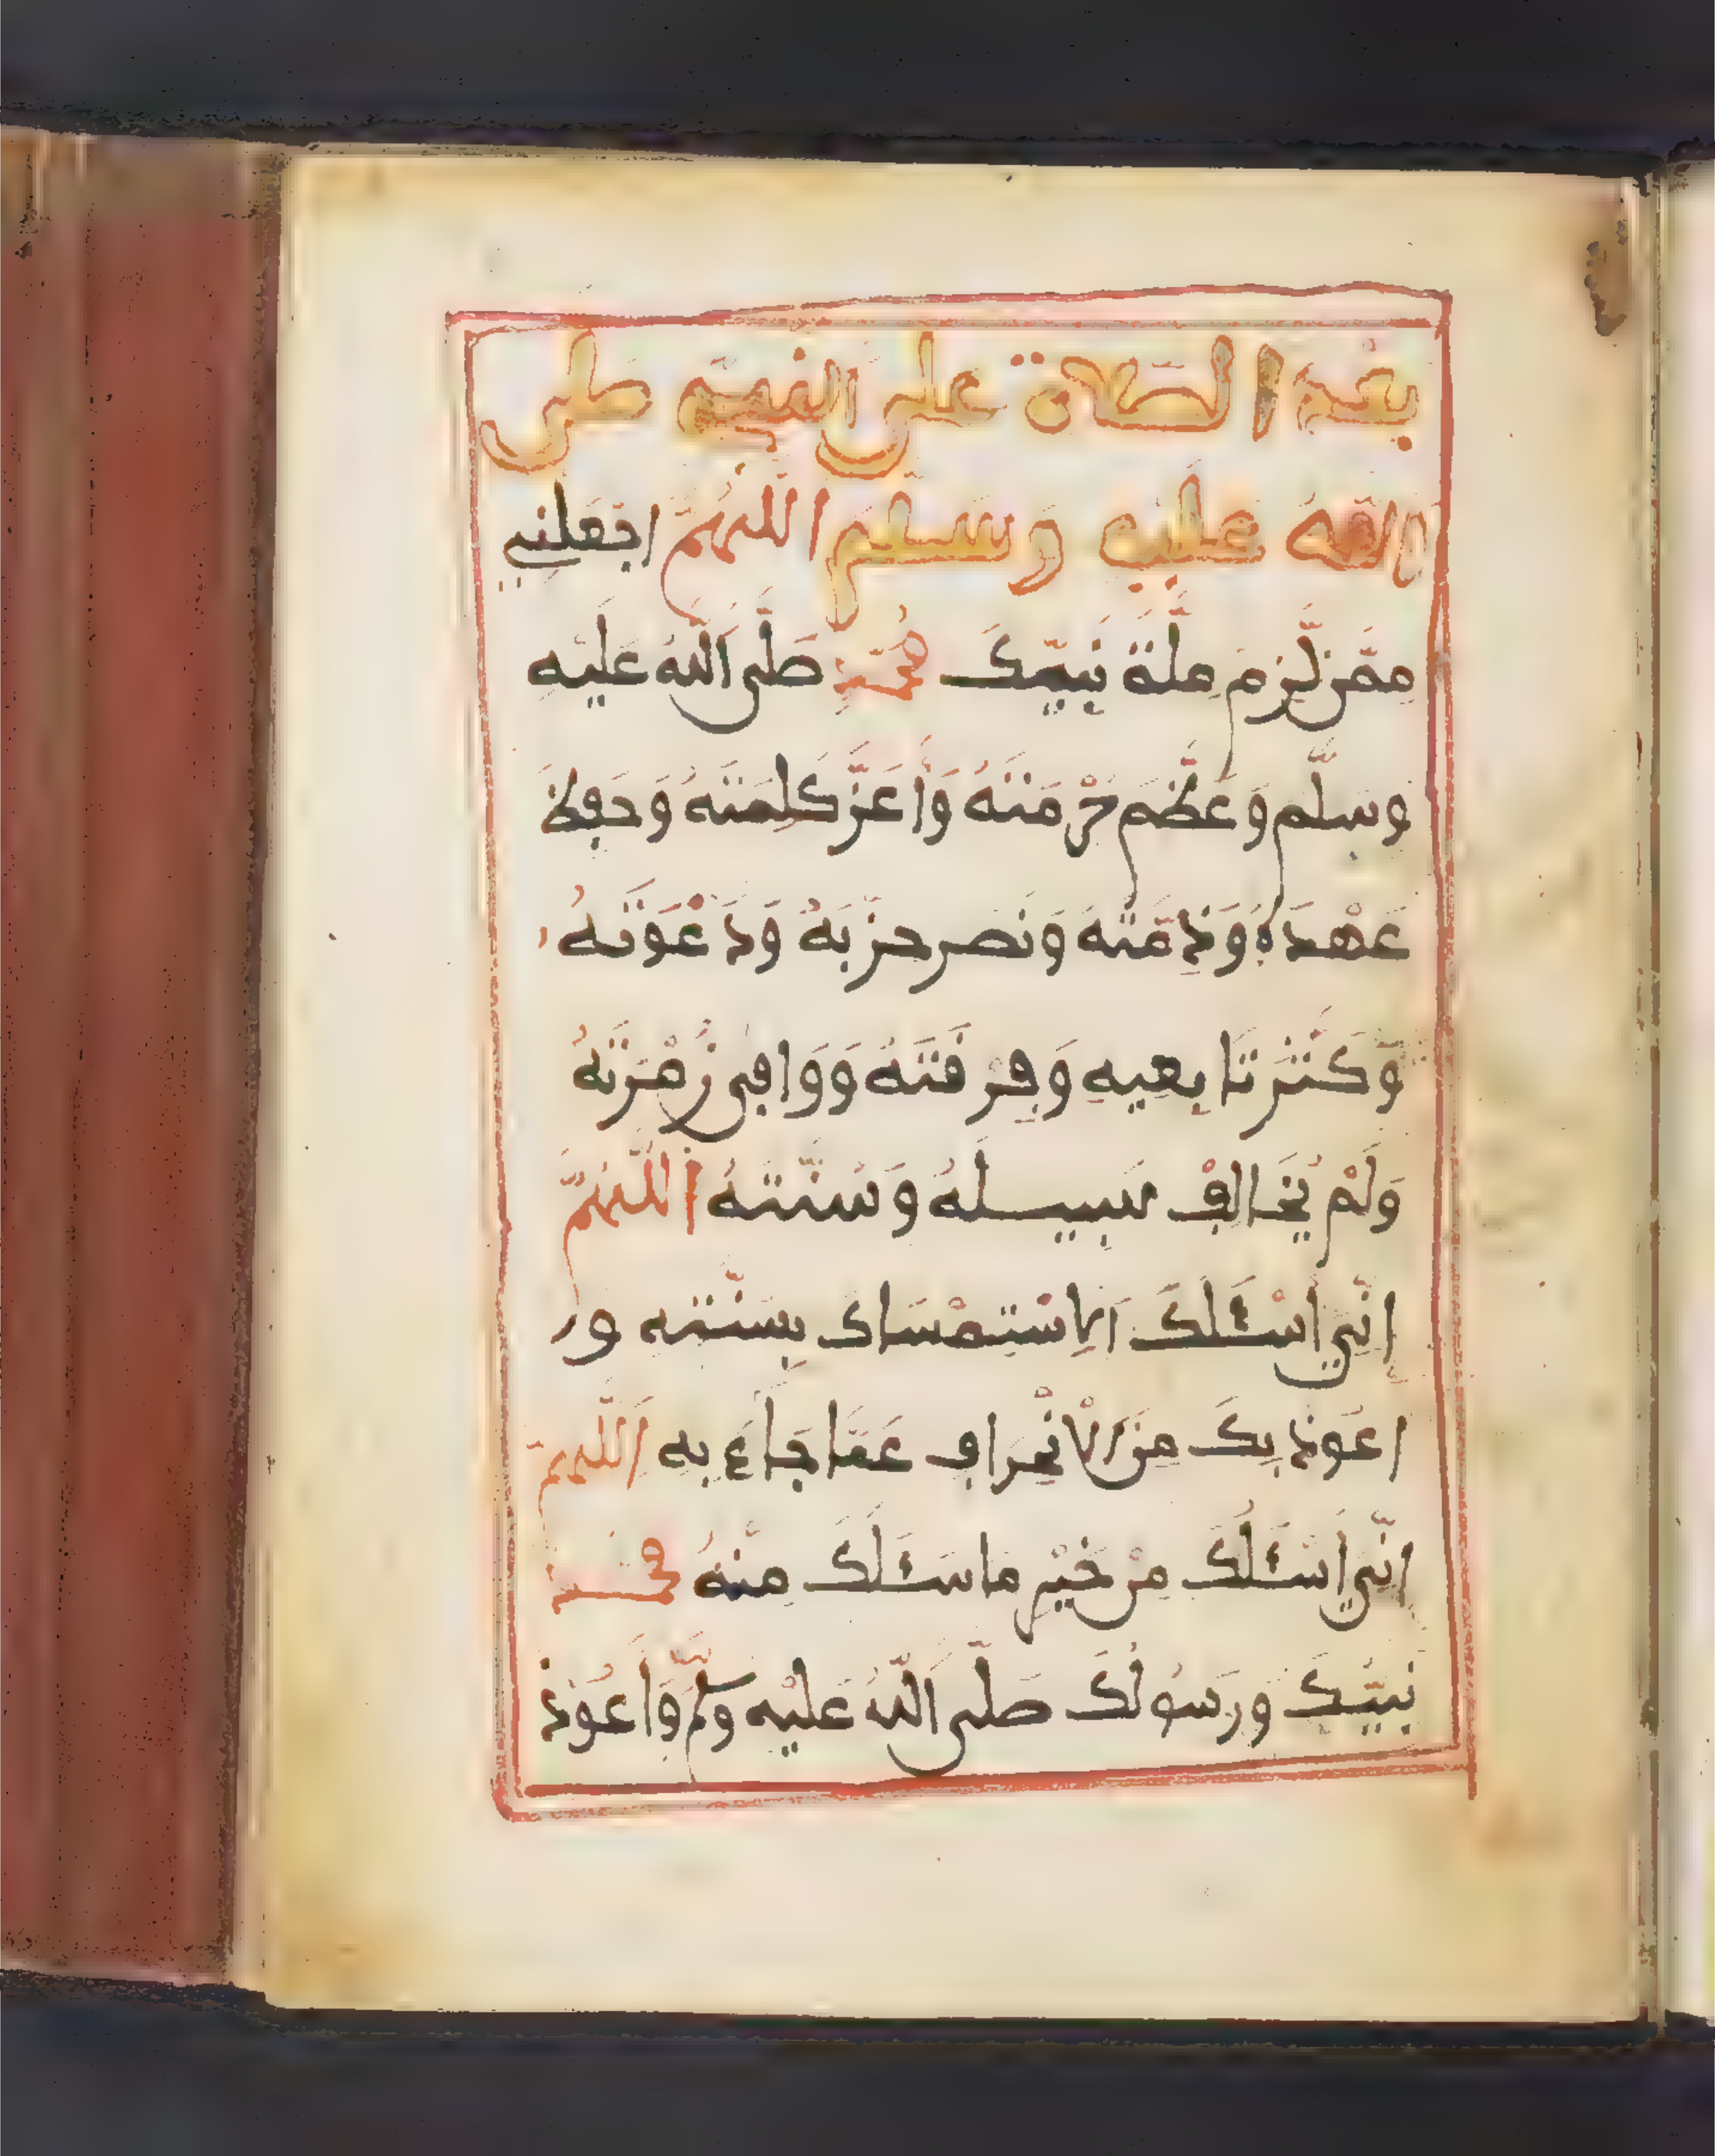 بعد الصلاة على النبي صلى
الله عليه وسلم اللهم اجعلني
ممن لزم ملة نبيك محمد صلى الله عليه
وسلم وعظم حرمته وأعز كلمته وحفظ
عهده وذمته ونصر حزبه ودعوته
وكثر تابعيه وفرقته ووافى زمرته
ولم يخالف سبيله وسنته اللهم
اني أسئلك الاستمساك بسنته و
اعوذ بك من الانحراف عما جاء به اللهم
اني أسئلك من خير ما سئلك منه محمد
نبيك ورسولك صلى الله عليه وسلم وأعوذ